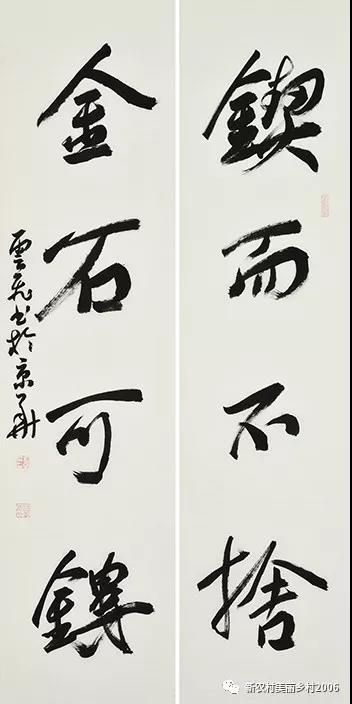 鍥而不捨
金石可鏤
雲飛书於京華
新农村美丽乡村2006